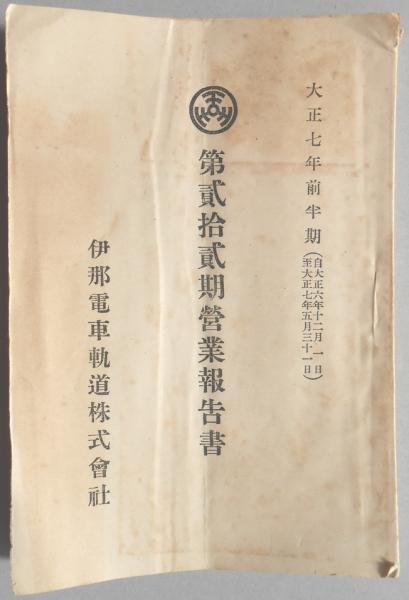 大正七年前半期（自大正六年十二月一日至大正七年五月三十一日）
第貳拾貳期營業報告書
伊那電車軌道株式會社